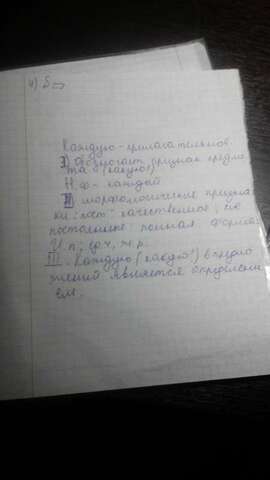 4) S ⇒
Каждую - прилагательное
I) обозначает признак предме
та (какую?)
Н.ф - каждый
II) морфологические призна
ки: пост - качественное, не
постоянные: полная форма,
И.п, ед.ч, ж.р.
III. Каждую (какую?) в предло
жений является определени
ем.